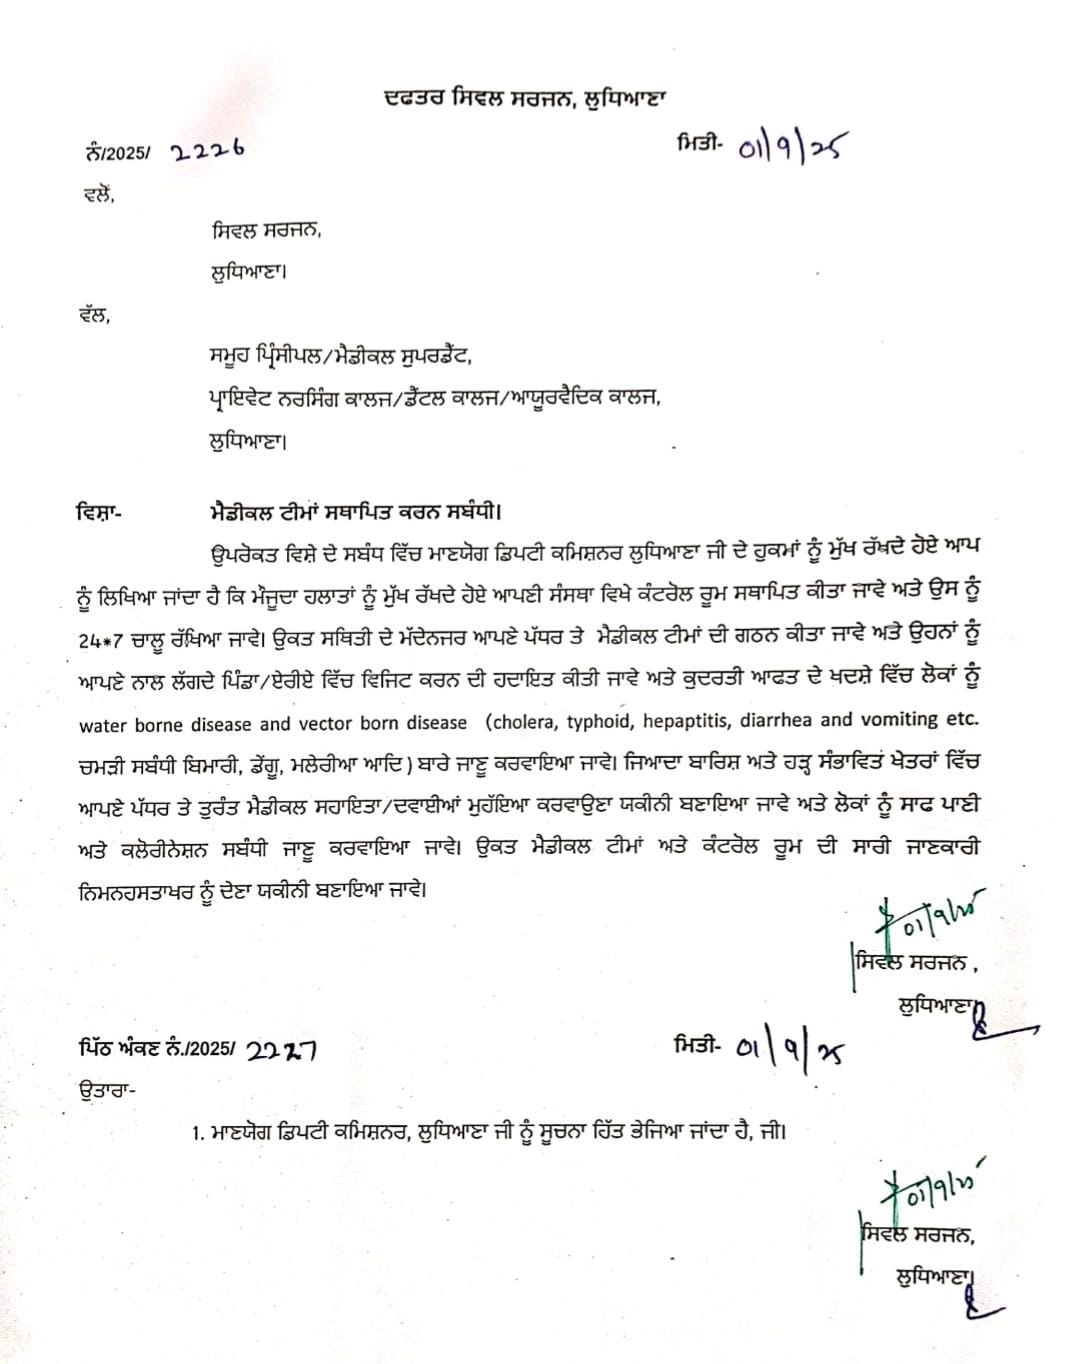 ਦਫਤਰ ਸਿਵਲ ਸਰਜਨ, ਲੁਧਿਆਣਾ
ਨੰ/2025/ 2226 ਮਿਤੀ- 01/9/25
ਵਲੋਂ,
ਸਿਵਲ ਸਰਜਨ,
ਲੁਧਿਆਣਾ।
ਵੱਲ,
ਸਮੂਹ ਪ੍ਰਿੰਸੀਪਲ/ਮੈਡੀਕਲ ਸੁਪਰਡੈਂਟ,
ਪ੍ਰਾਇਵੇਟ ਨਰਸਿੰਗ ਕਾਲਜ/ਡੈਂਟਲ ਕਾਲਜ/ਆਯੂਰਵੈਦਿਕ ਕਾਲਜ,
ਲੁਧਿਆਣਾ।
ਵਿਸ਼ਾ- ਮੈਡੀਕਲ ਟੀਮਾਂ ਸਥਾਪਿਤ ਕਰਨ ਸਬੰਧੀ।
ਉਪਰੋਕਤ ਵਿਸ਼ੇ ਦੇ ਸਬੰਧ ਵਿੱਚ ਮਾਣਯੋਗ ਡਿਪਟੀ ਕਮਿਸ਼ਨਰ ਲੁਧਿਆਣਾ ਜੀ ਦੇ ਹੁਕਮਾਂ ਨੂੰ ਮੁੱਖ ਰੱਖਦੇ ਹੋਏ ਆਪ
ਨੂੰ ਲਿਖਿਆ ਜਾਂਦਾ ਹੈ ਕਿ ਮੌਜੂਦਾ ਹਲਾਤਾਂ ਨੂੰ ਮੁੱਖ ਰੱਖਦੇ ਹੋਏ ਆਪਣੀ ਸੰਸਥਾ ਵਿਖੇ ਕੰਟਰੋਲ ਰੂਮ ਸਥਾਪਿਤ ਕੀਤਾ ਜਾਵੇ ਅਤੇ ਉਸ ਨੂੰ
24*7 ਚਾਲੂ ਰੱਖਿਆ ਜਾਵੇ। ਉਕਤ ਸਥਿਤੀ ਦੇ ਮੱਦੇਨਜਰ ਆਪਣੇ ਪੱਧਰ ਤੇ ਮੈਡੀਕਲ ਟੀਮਾਂ ਦੀ ਗਠਨ ਕੀਤਾ ਜਾਵੇ ਅਤੇ ਉਹਨਾਂ ਨੂੰ
ਆਪਣੇ ਨਾਲ ਲੱਗਦੇ ਪਿੰਡਾ/ਏਰੀਏ ਵਿੱਚ ਵਿਜਿਟ ਕਰਨ ਦੀ ਹਦਾਇਤ ਕੀਤੀ ਜਾਵੇ ਅਤੇ ਕੁਦਰਤੀ ਆਫਤ ਦੇ ਖਦਸ਼ੇ ਵਿੱਚ ਲੋਕਾਂ ਨੂੰ
water borne disease and vector born disease (cholera, typhoid, hepaptitis, diarrhea and vomiting etc.
ਚਮੜੀ ਸਬੰਧੀ ਬਿਮਾਰੀ, ਡੇਂਗੂ, ਮਲੇਰੀਆ ਆਦਿ) ਬਾਰੇ ਜਾਣੂ ਕਰਵਾਇਆ ਜਾਵੇ। ਜਿਆਦਾ ਬਾਰਿਸ਼ ਅਤੇ ਹੜ੍ਹ ਸੰਭਾਵਿਤ ਖੇਤਰਾਂ ਵਿੱਚ
ਆਪਣੇ ਪੱਧਰ ਤੇ ਤੁਰੰਤ ਮੈਡੀਕਲ ਸਹਾਇਤਾ/ਦਵਾਈਆਂ ਮੁਹੱਇਆ ਕਰਵਾਉਣਾ ਯਕੀਨੀ ਬਣਾਇਆ ਜਾਵੇ ਅਤੇ ਲੋਕਾਂ ਨੂੰ ਸਾਫ ਪਾਣੀ
ਅਤੇ ਕਲੋਰੀਨੇਸ਼ਨ ਸਬੰਧੀ ਜਾਣੂ ਕਰਵਾਇਆ ਜਾਵੇ। ਉਕਤ ਮੈਡੀਕਲ ਟੀਮਾਂ ਅਤੇ ਕੰਟਰੋਲ ਰੂਮ ਦੀ ਸਾਰੀ ਜਾਣਕਾਰੀ
ਨਿਮਨਹਸਤਾਖਰ ਨੂੰ ਦੇਣਾ ਯਕੀਨੀ ਬਣਾਇਆ ਜਾਵੇ।
01/9/25
ਸਿਵਲ ਸਰਜਨ,
ਲੁਧਿਆਣਾ।
ਪਿੱਠ ਅੰਕਣ ਨੰ./2025/ 2227 ਮਿਤੀ- 01/9/25
ਉਤਾਰਾ-
1. ਮਾਣਯੋਗ ਡਿਪਟੀ ਕਮਿਸ਼ਨਰ, ਲੁਧਿਆਣਾ ਜੀ ਨੂੰ ਸੂਚਨਾ ਹਿੱਤ ਭੇਜਿਆ ਜਾਂਦਾ ਹੈ, ਜੀ।
01/9/25
ਸਿਵਲ ਸਰਜਨ,
ਲੁਧਿਆਣਾ।